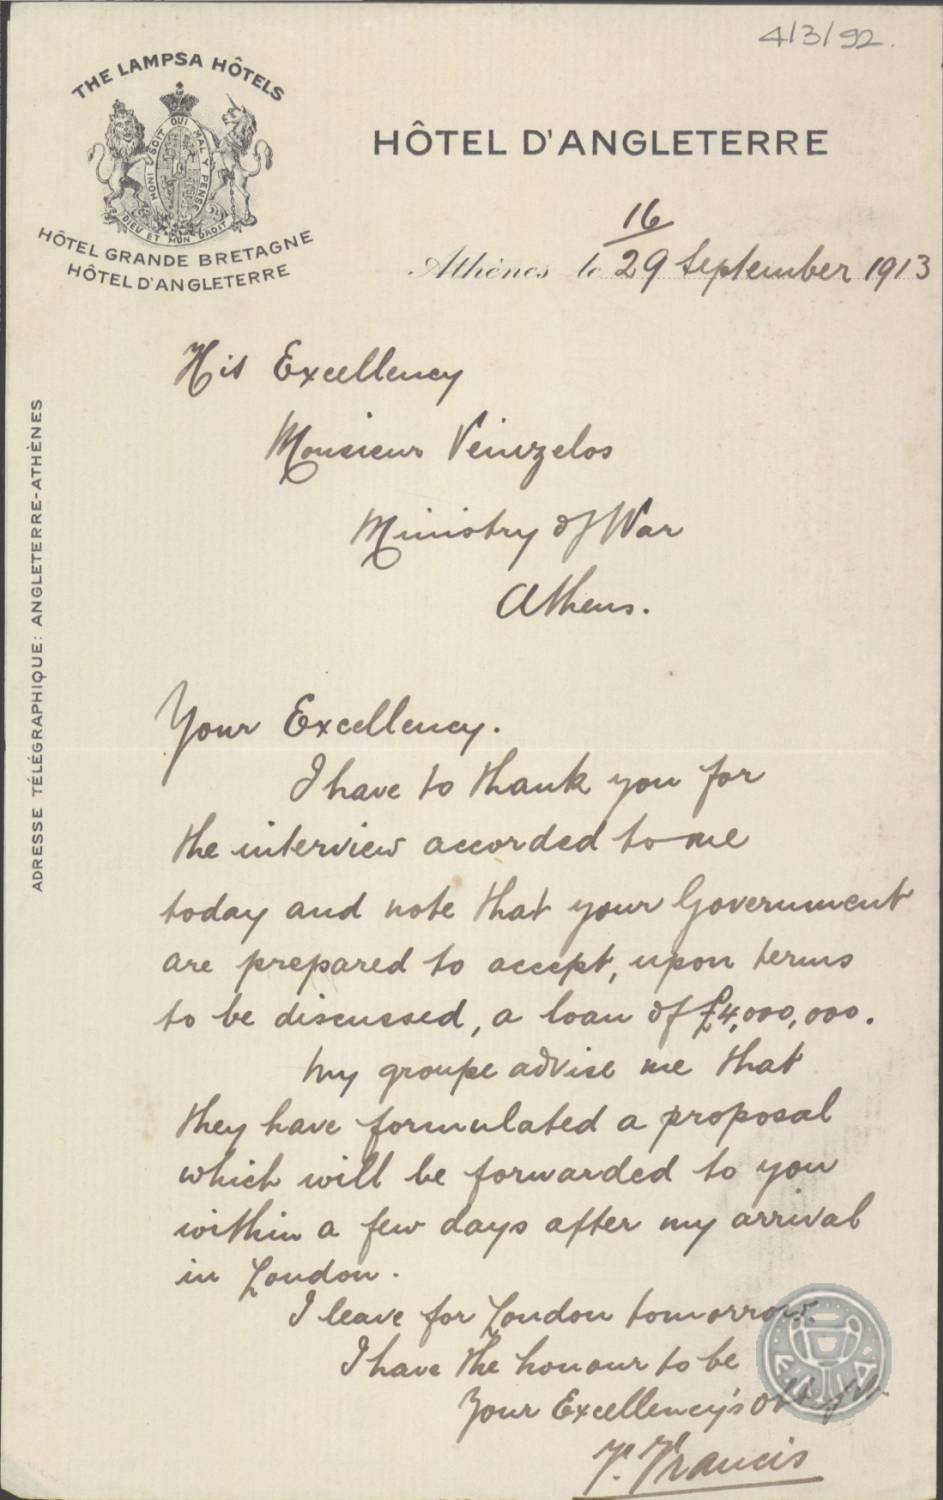 4/3/92.
THE LAMPSA HÔTELS
HONI SOIT QUI MAL Y PENSE
DIEU ET MON DROIT
HÔTEL GRANDE BRETAGNE
HÔTEL D'ANGLETERRE
HÔTEL D'ANGLETERRE
16
Athènes le 29 September 1913
ADRESSE TÉLÉGRAPHIQUE: ANGLETERRE-ATHÈNES
His Excellency
Monsieur Veinzelos
Ministry of War
Athens.
Your Excellency.
I have to thank you for
the interview accorded to me
today and note that your Government
are prepared to accept, upon terms
to be discussed, a loan of £4,000,000.
My groupe advise me that
they have formulated a proposal
which will be forwarded to you
within a few days after my arrival
in London.
I leave for London tomorrow.
I have the honour to be
Your Excellency's
Francis